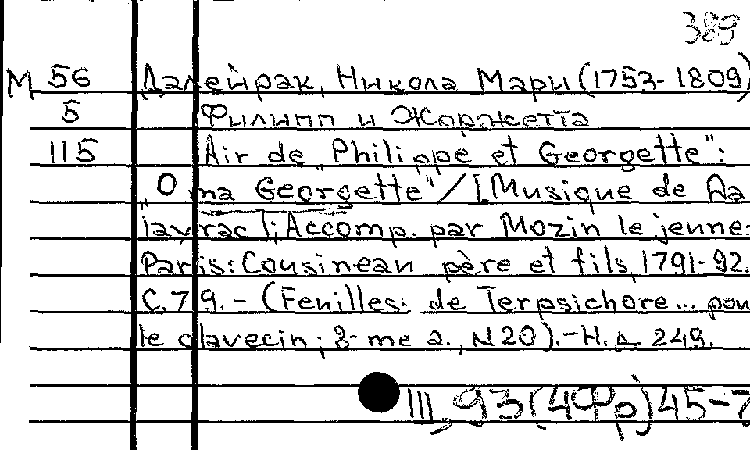 389
М 56 Далейрак, Никола Мари (1753-1809)
5 Филипп и Жоржетта
115 Air de „Philippe et Georgette":
„O ma Georgette" / [Musique de Da
layrac]; Accomp. par Mozin le jeune.-
Paris: Cousineau père et fils, 1791-92.
С. 79. - (Feuilles de Terpsichore... pour
le clavecin; 2-me a., N 20). - Н. д. 249.
III, 93(4Фр)45-7